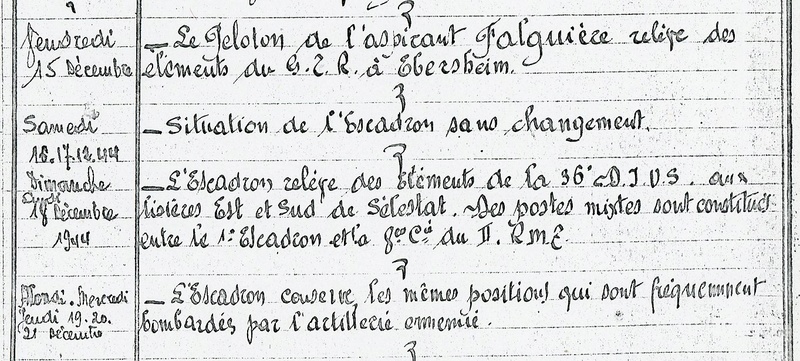 Vendredi
15 Décembre
— Le Peloton de l'aspirant Falguière relève des
éléments du G.T.R. à Ebersheim.
Samedi
16.17.12.44
— Situation de l'Escadron sans changement.
Dimanche
18 Décembre
1944
— L'Escadron relève des Eléments de la 36° D.I.U.S. aux
lisières Est et Sud de Sélestat. Des postes mixtes sont constitués
entre le 1° Escadron et la Cie du II. RME.
Mardi. Mercredi
Jeudi 19.20.
21 Décembre
— L'Escadron conserve les mêmes positions qui sont fréquemment
bombardés par l'artillerie ennemie.